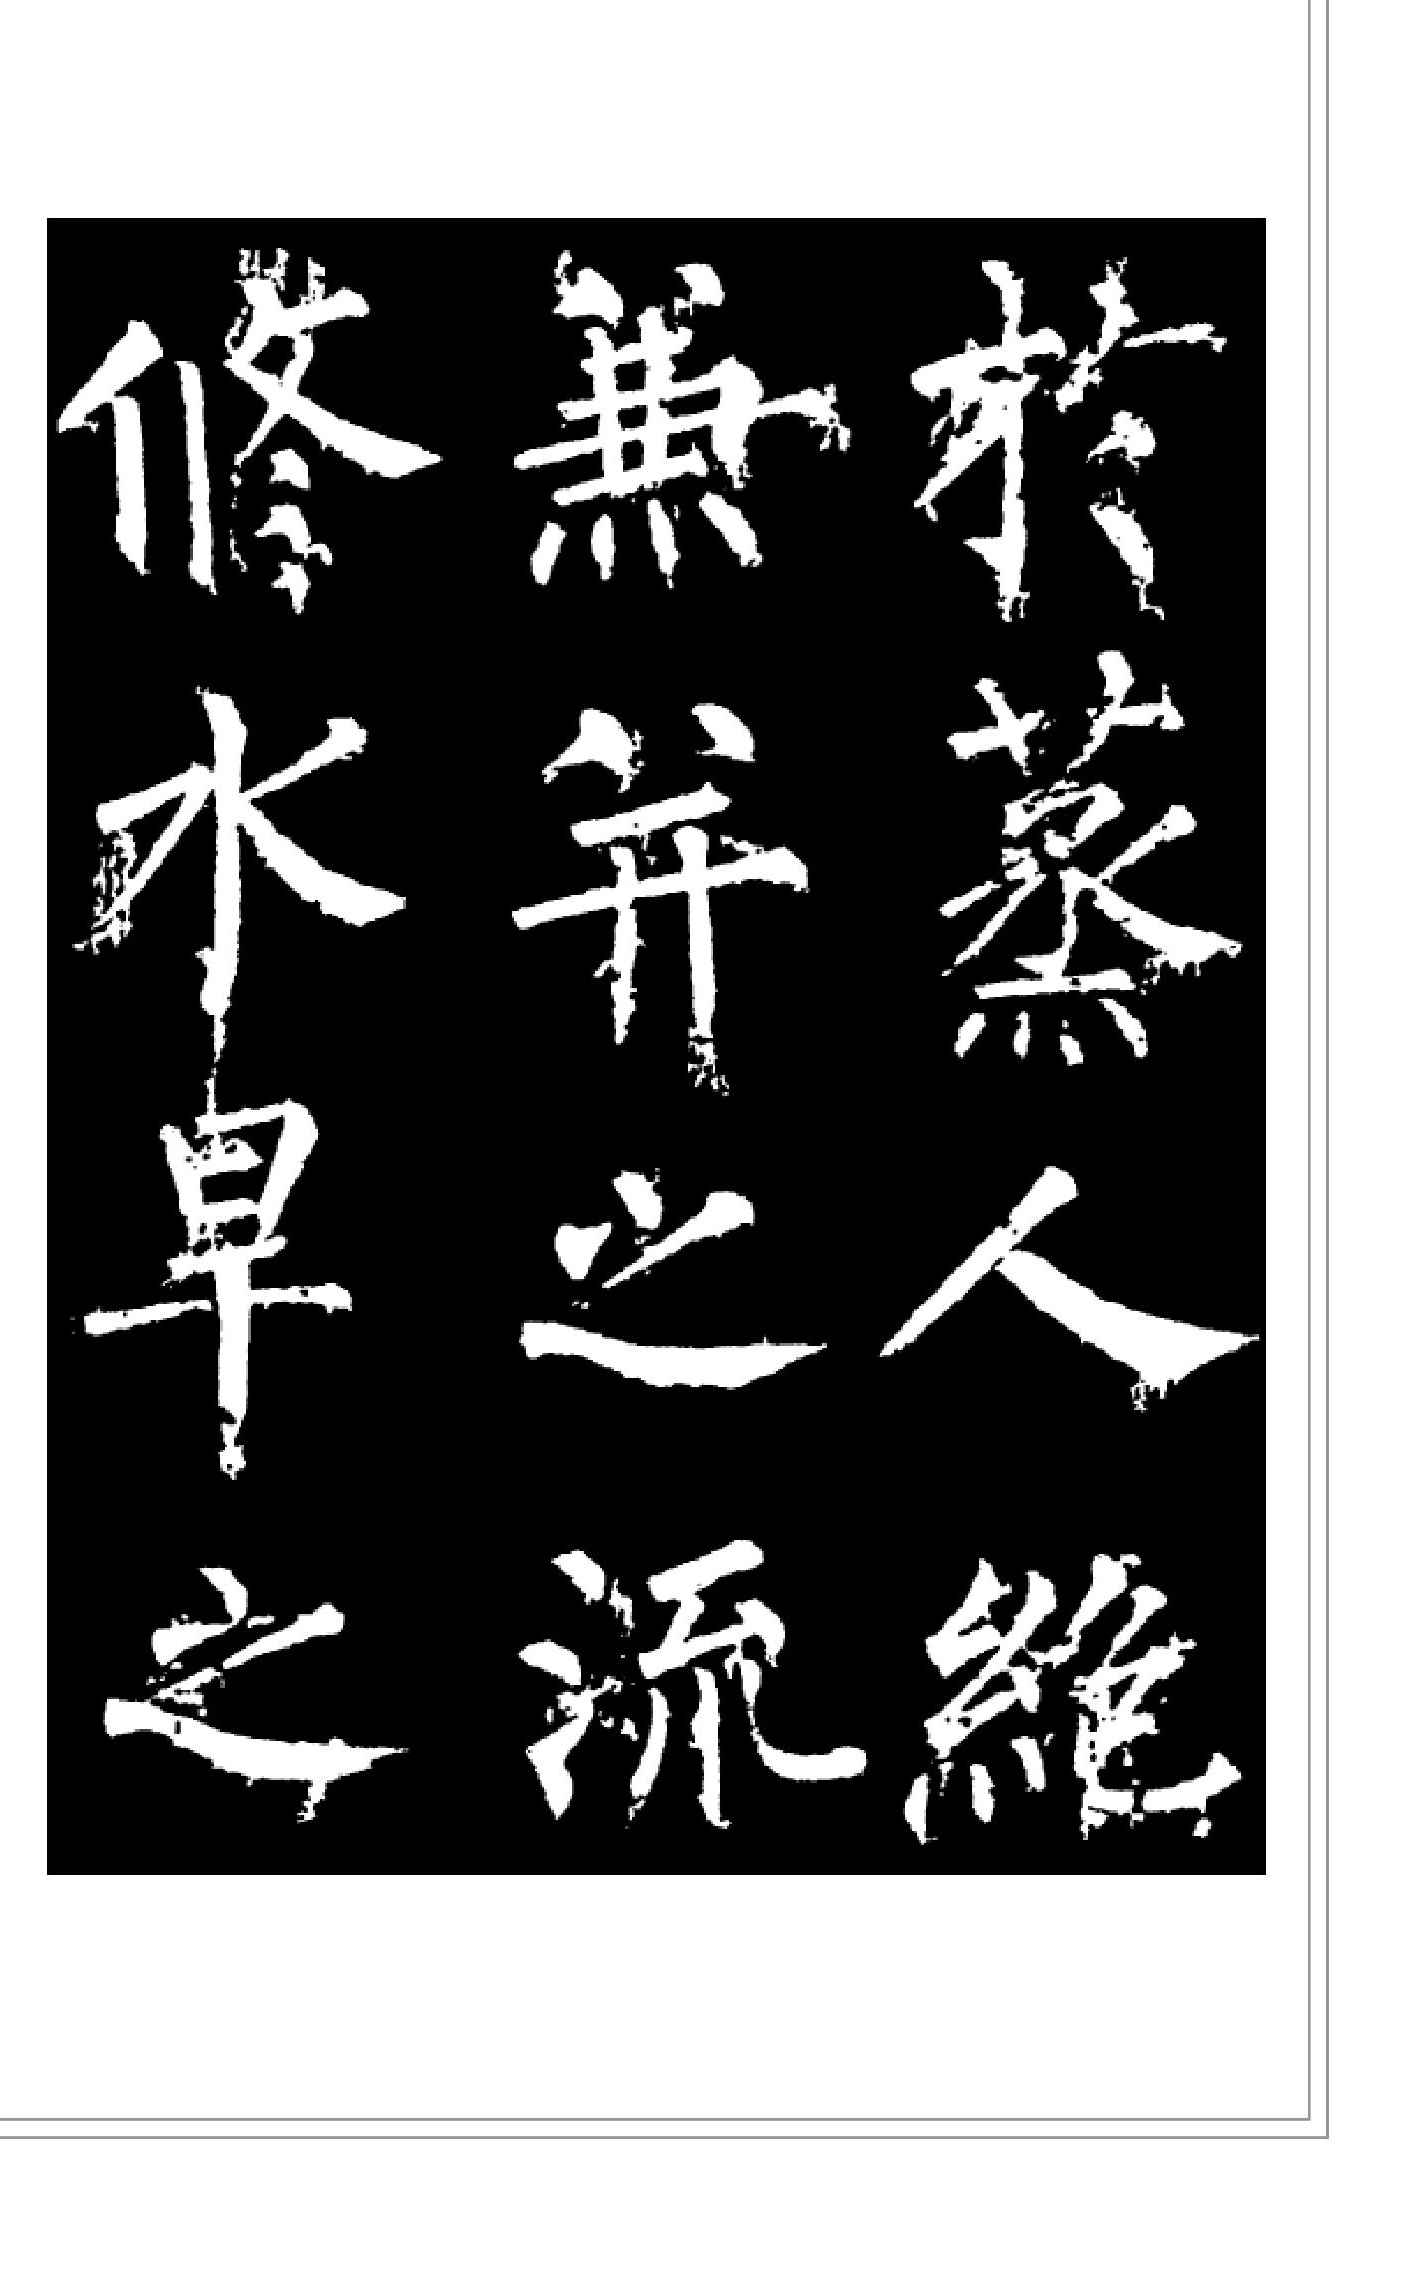 於蒸人絶
兼并之流
修水旱之